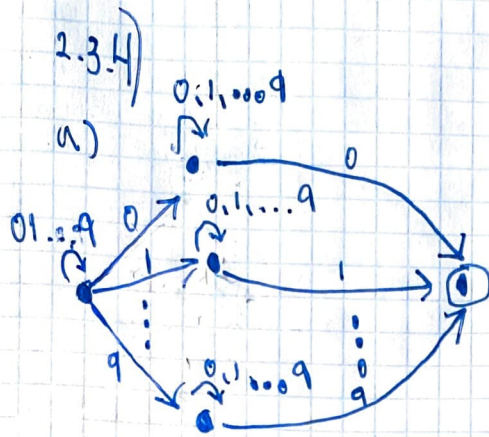 2.3.4)
a)
0,1,...9
0
01...9
0
0,1,...9
1
1
9
0,1,...9
9